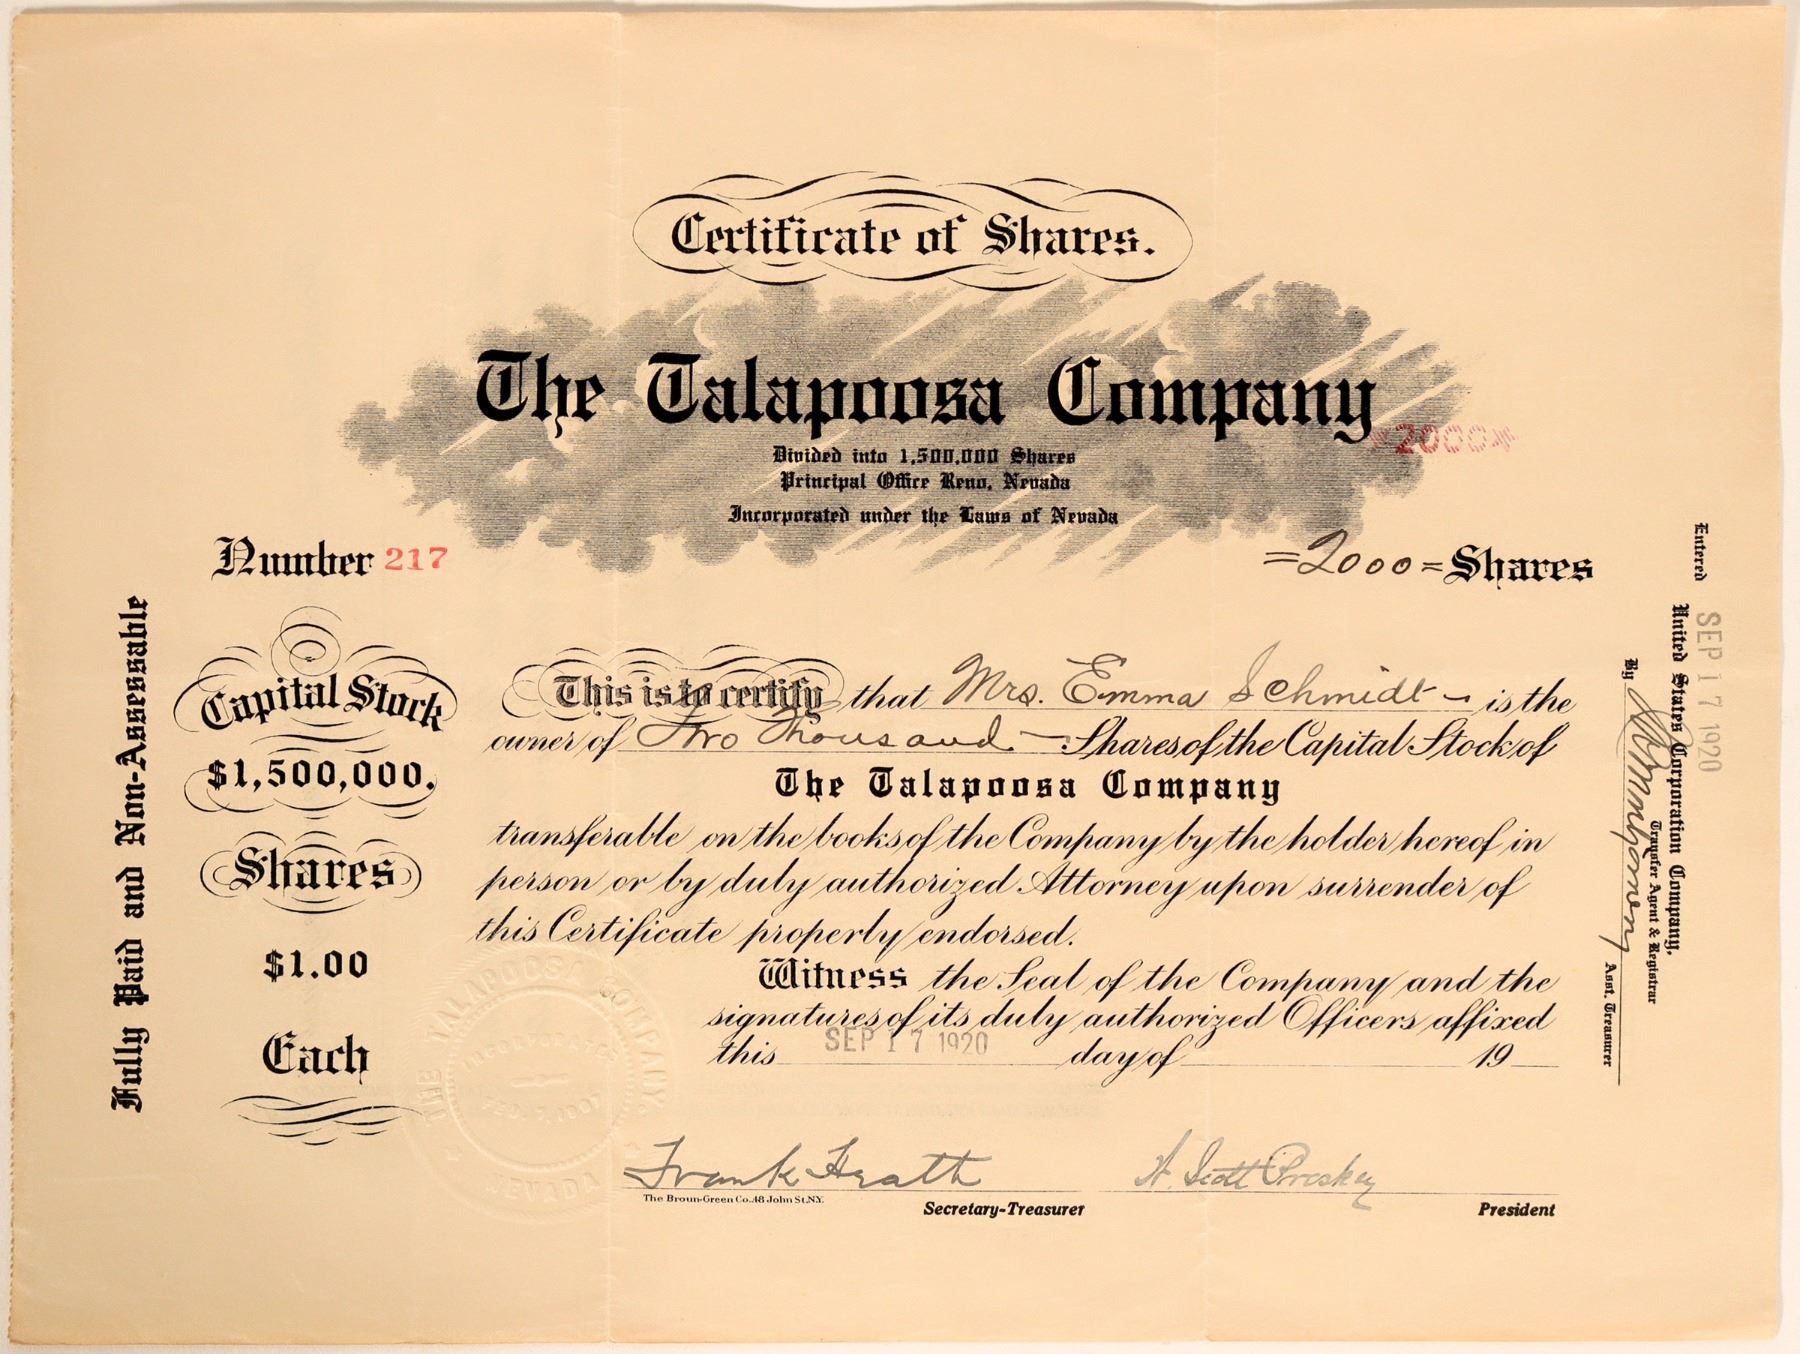 Certificate of Shares.
The Talapoosa Company
2000
Divided into 1,500,000 Shares
Principal Office Reno, Nevada
Incorporated under the Laws of Nevada
Number 217
=2000= Shares
Fully Paid and Non-Assessable
Capital Stock
$1,500,000.
Shares
$1.00
Each
This is to certify that Mrs. Emma Schmidt is the
owner of Two Thousand Shares of the Capital Stock of
The Talapoosa Company
transferable on the books of the Company by the holder hereof in
person or by duly authorized Attorney upon surrender of
this Certificate properly endorsed.
Witness the Seal of the Company and the
signatures of its duly authorized Officers affixed
this SEP 17 1920 day of 19
THE TALAPOOSA COMPANY
INCORPORATED
FEB. 7, 1907
NEVADA
Frank Heath
The Broun-Green Co. 48 John St. N.Y.
Secretary-Treasurer
H. Scott Proskey
President
Entered SEP 17 1920
United States Corporation Company,
Transfer Agent & Registrar
By
Asst. Treasurer